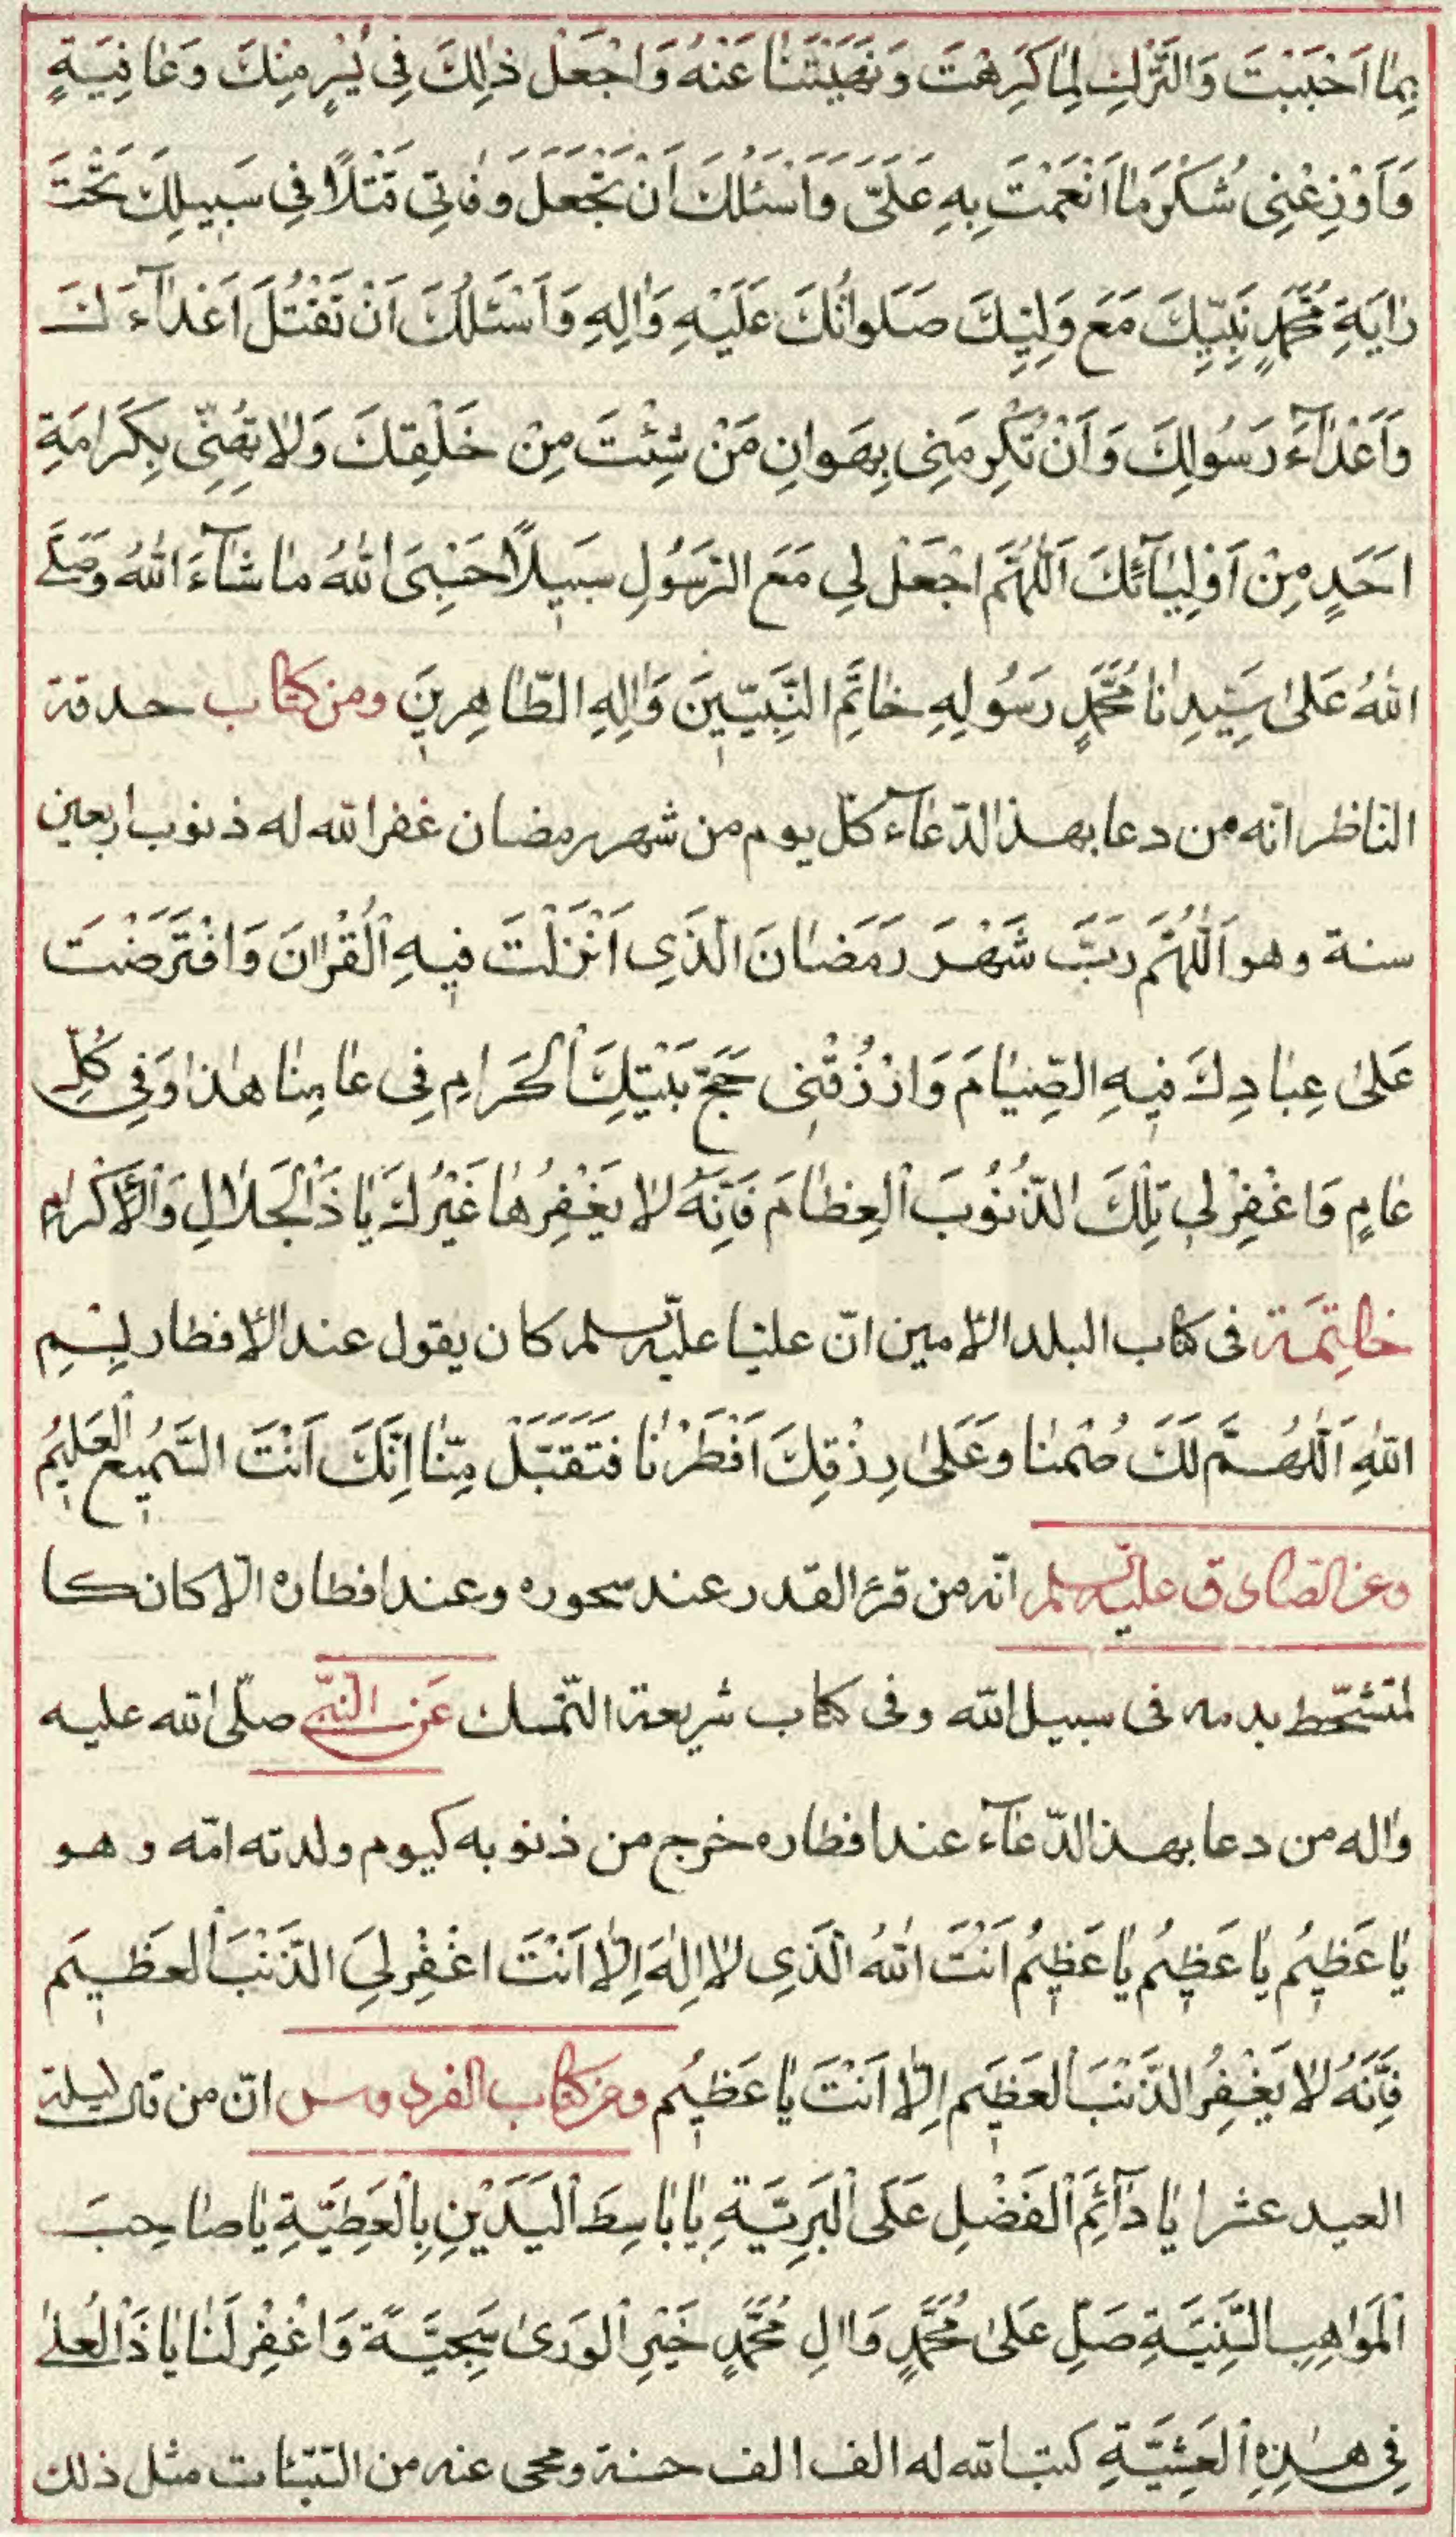 بِمٰا اَحْبَبْتَ وَالتَّرْكِ لِمٰا كَرِهْتَ وَنَهَيْتَنٰا عَنْهُ وَاجْعَلْ ذٰلِكَ فِى يُسْرٍ مِنْكَ وَعٰافِيَةٍ
وَاَوْزِعْنِى شُكْرَ مٰا اَنْعَمْتَ بِهِ عَلَىَّ وَاَسْئَلُكَ اَنْ تَجْعَلَ وَفٰاتِى قَتْلًا فِى سَبِيلِكَ تَحْتَ
رٰايَةِ مُحَمَّدٍ نَبِيِّكَ مَعَ وَلِيِّكَ صَلَوٰاتُكَ عَلَيْهِ وَاٰلِهِ وَاَسْئَلُكَ اَنْ تَقْتُلَ اَعْدٰآءَكَ
وَاَعْدٰآءَ رَسُولِكَ وَاَنْ تُكْرِمَنِى بِهَوانِ مَنْ شِئْتَ مِنْ خَلْقِكَ وَلٰا تُهِنِّى بِكَرٰامَةِ
اَحَدٍ مِنْ اَوْلِيٰآئِكَ اَللّٰهُمَّ اجْعَلْ لِى مَعَ الرَّسُولِ سَبِيلًا حَسْبِىَ اللّٰهُ مٰا شٰآءَ اللّٰهُ وَصَلَّى
اللّٰهُ عَلىٰ سَيِّدِنٰا مُحَمَّدٍ رَسُولِهِ خٰاتَمِ النَّبِيّينَ وَاٰلِهِ الطّٰاهِرِينَ ومن كتاب حدقة
الناظر انّه من دعا بهذا الدّعآء كلّ يوم من شهر رمضان غفر الله له ذنوب اربعين
سنة وهو اَللّٰهُمَّ رَبَّ شَهْرَ رَمَضٰانَ الَّذِى اَنْزَلْتَ فِيهِ الْقُرْاٰنَ وَافْتَرَضْتَ
عَلىٰ عِبٰادِكَ فِيهِ الصِّيٰامَ وَارْزُقْنِى حَجَّ بَيْتِكَ الْحَرٰامِ فِى عٰامِنٰا هٰذٰا وَفِى كُلِّ
عٰامٍ وَاغْفِرْ لِى تِلْكَ الذُّنُوبَ الْعِظٰامَ فَاِنَّهُ لٰا يَغْفِرُهٰا غَيْرُكَ يٰا ذَا الْجَلٰالِ وَالْاِكْرٰامِ
خٰاتِمَة فى كتاب البلد الامين انّ عليّا عليه السلم كان يقول عند الافطار بِسْمِ
اللّٰهِ اَللّٰهُمَّ لَكَ صُمْنٰا وَعَلىٰ رِزْقِكَ اَفْطَرْنٰا فَتَقَبَّلْ مِنّٰا اِنَّكَ اَنْتَ السَّمِيعُ الْعَلِيمُ
وعن الصّادق عليه السلم انّه من قرء القدر عند سحوره وعند افطاره الّا كان كا
لمتشحّط بدمه فى سبيل الله وفى كتاب شريعة التّمسك عَن النّبى صلّى الله عليه
واٰله من دعا بهذا الدّعآء عند افطاره خرج من ذنوبه كيوم ولدته امّه وهو
يٰا عَظِيمُ يٰا عَظِيمُ يٰا عَظِيمُ اَنْتَ اللّٰهُ الَّذِى لٰا اِلٰهَ اِلّٰا اَنْتَ اغْفِرْ لِىَ الذَّنْبَ الْعَظِيمَ
فَاِنَّهُ لٰا يَغْفِرُ الذَّنْبَ الْعَظِيمَ اِلّٰا اَنْتَ يٰا عَظِيمُ ومن كتاب الفردوس انّ من قال ليلة
العيد عشرا يٰا دٰآئِمَ الْفَضْلِ عَلَى الْبَرِيَّةِ يٰا بٰاسِطَ الْيَدَيْنِ بِالْعَطِيَّةِ يٰا صٰاحِبَ
الْمَوٰاهِبِ السَّنِيَّةِ صَلِّ عَلىٰ مُحَمَّدٍ وَاٰلِ مُحَمَّدٍ خَيْرِ الْوَرىٰ سَجِيَّةً وَاغْفِرْ لَنٰا يٰا ذَا الْعُلىٰ
فِى هٰذِهِ الْعَشِيَّةِ كتب الله له الف الف حسنة ومحى عنه من السّيّئات مثل ذلك